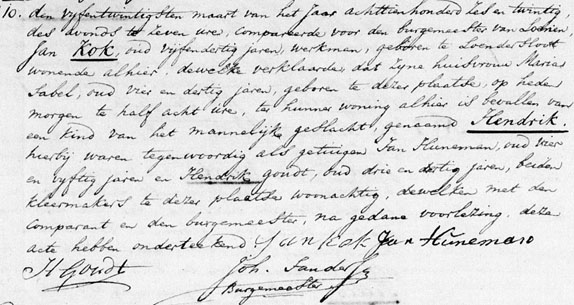 10. den vyfentwintigsten maart van het Jaar achttienhonderd zes en twintig,
des avonds te zeven ure, compareerde voor den burgemeester van Loenen
Jan Kok, oud vyfendertig jaren, werkman, geboren te Loenderstoot
wonende alhier, dewelke verklaarde, dat zyne huisvrouw Maria
Sabel, oud vier en dertig jaren, geboren te dezer plaatse, op heden
morgen te half acht ure, te hunner woning alhier is bevallen van
een kind van het mannelijke geslacht, genaamd Hendrik.
hierby waren tegenwoordig als getuigen Jan Huneman, oud vier
en vyftig jaren en Hendrik Goudt, oud drie en dertig jaren, beiden
kleermakers te dezer plaatse woonachtig, dewelken met den
comparant en den burgemeester, na gedane voorlezing, deze
acte hebben onderteekend Jan Kok Jan Huneman
H Goudt Joh. Sanders
Burgemeester